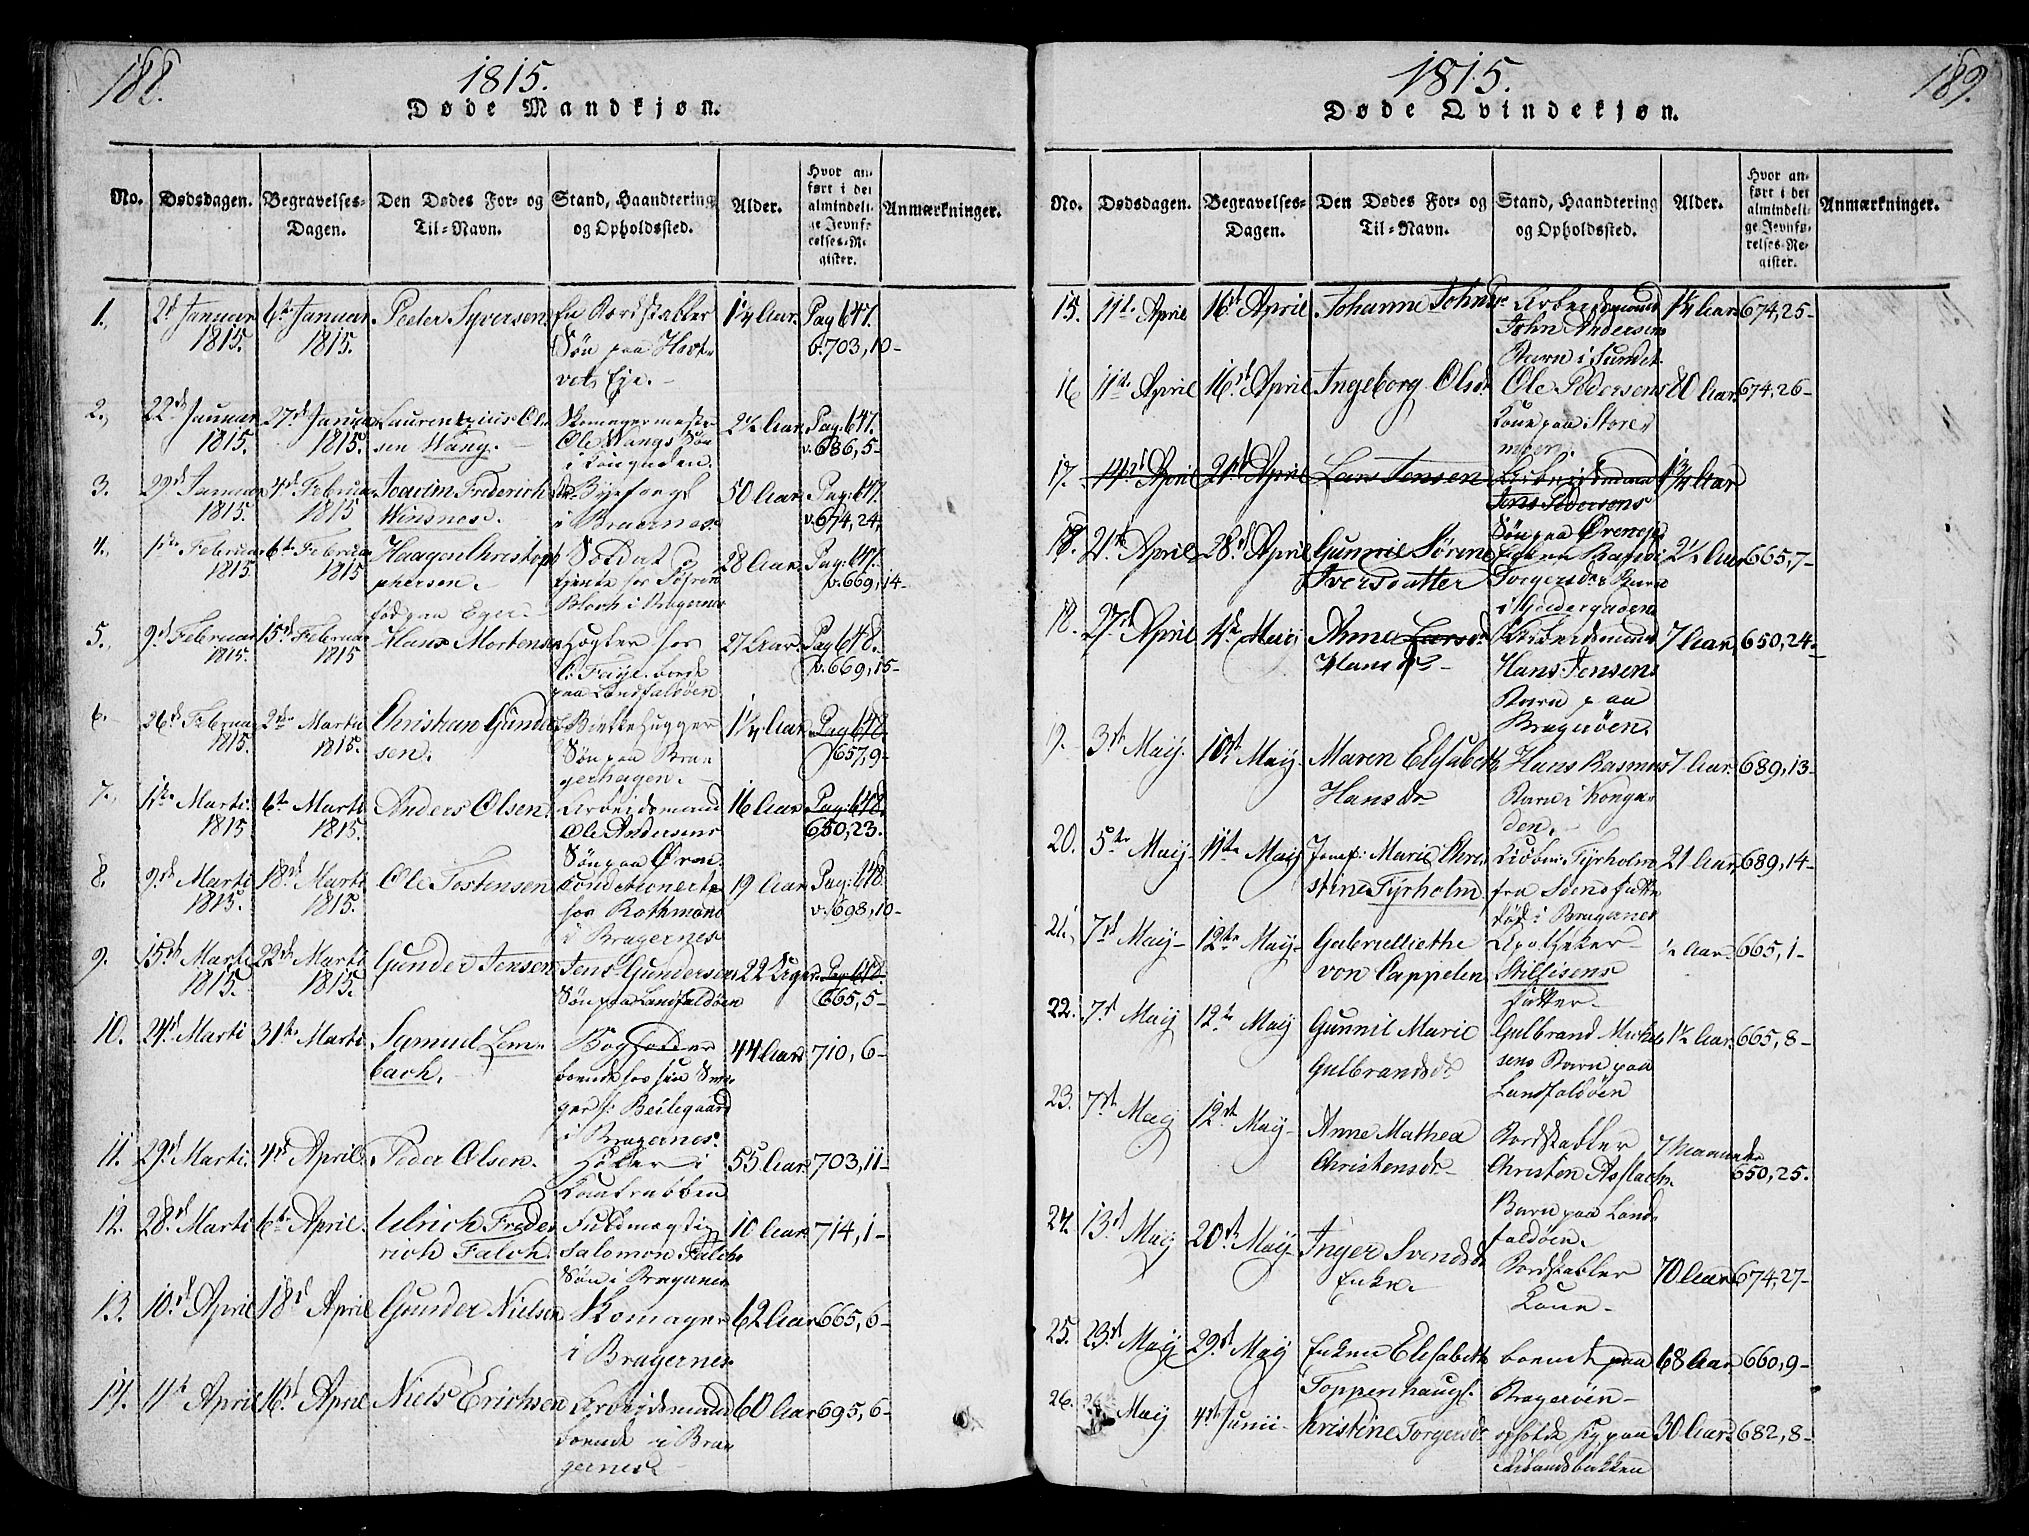 188.
1815.
Døde Mandkjøn.
No. Dødsdagen. Begravelses-Dagen. Den Dødes For- og Til-Navn. Stand, Haandtering og Opholdssted. Alder. Hvor anført i det almindelige Jevnførelses-Register. Anmærkninger.
1. 2d Januar 1815. 6te Januar 1815. Peder Syversen Søn paa Eje. 1¼ Aar. Pag 647. v. 703, 10-
2. 22de Januar 1815. 27de Januar 1815. Laurentzius Olsen Wang. Skomagermester Ole Wangs Søn i Kongegaden. 2½ Aar. Pag: 647. v. 686, 5-
3. 29de Januar 1815. 4de Februar 1815. Joacim Frederich Winsnes. Byefoged i Bragernes. 50 Aar. Pag: 647. v. 674, 24,
4. 1ste Februar 1815. 6te Februar 1815 Haagen Christophersen. fød paa Eger. Soldat, tjente hos Bloch i Bragernes 28 Aar. Pag: 647. v. 669, 14-
5. 9de Februar 1815. 15de Februar 1815 Hans Mortensen hos C: Faye. paa Landfaldøen 27 Aar. Pag 648. v. 669, 15-
6. 26de Februar 1815. 2den Marti 1815. Christian Gundersen. Bielkehugger Søn paa Bragerhagen. 1¼ Aar. Pag 648. 657, 9-
7. 1ste Marti 1815 6te Marti 1815. Anders Olsen. Arbeidsmand Ole Andersens Søn paa Øren. 16 Aar. Pag: 648. 650, 23.
8. 9de Marti 1815. 18de Marti 1815. Ole Tostensen Conditionerte hos Rothmand i Bragernes 19 Aar. Pag: 648. v. 698, 10-
9. 15de Marti 1815. 22de Marti 1815. Gunder Jensen Jens Gundersens Søn paa Landfaldøen 22 Uger. Pag 648. 665, 5-
10. 24de Marti 31te Marti. Samuel Lembach. Bogholder boende hos sin Svoger Hr: Beilegaard i Bragernes. 44 Aar. 710, 6-
11. 29de Marti. 4de April. Peder Olsen. Høker i 55 Aar. 703, 11-
12. 28de Marti 6te April. Ulrich Frederich Falch. Fuldmægtig Salomon Falchs Søn i Bragernes 10 Aar. 714, 1-
13. 10de April 18de April Gunder Nielsen Skomager i Bragernes. 62 Aar. 665, 6-
14. 11te April 16de April Niels Erichsen Arbeidsmand boende i Bragernes. 60 Aar 695, 6-
1815.
189.
Døde Qvindekjøn.
No. Dødsdagen. Begravelses-Dagen. Den Dødes For- og Til-Navn. Stand, Haandtering og Opholdssted. Alder. Hvor anført i det almindelige Jevnførelses-Register. Anmærkninger.
15. 11te April 16de April Johanne Johnsdr. Arbeidsmand John Andersens Barn i Sundet. 1¼ Aar 674, 25-
16 11te April 16de April Ingeborg Olsdr. Ole Pedersens Kone paa Store 80 Aar. 674, 26-
17. 14de April 20de April Lars Jensen Arbeidsmand Jens Pedersens Søn paa Øren 1¾ Aar
18. 21de April 28de April Gunnil Sørine Iversdatter Torgersdrs Barn i Giedergaden 2½ Aar 665, 7-
18. 27de April 4de Maij Anne Larsdr. Hansdr Arbeidsmand Hans Jensens Barn paa Bragerøen. 7 Aar. 650, 24-
19. 3de Maij. 10de Maij Maren Elisabeth Hansdr Hans Rasmus Barn i Kongegaden. 7 Aar. 689, 13-
20. 5te Maij 11te Maij Jomf: Marie Christine Tyrholm Kiøbm: Tyrholms fra død i Bragernes 21 Aar 689, 14-
21. 7de Maij 12te Maij Gabrielliethe von Cappelen Apotheker datter ½ Aar. 665, 1-
22. 7de Maij 12te Maij Gunnil Marie Gulbrandsdr Gulbrand Michelsens Barn paa Landfaldøen 1½ Aar. 665, 8-
23. 7de Maij 12te Maij Anne Mathea Christensdr. Bordstabler Christen Aslachs. Barn paa Landfaldøen. 7 Maaneder 650, 25.
24. 13de Maij 20de Maij Inger Svendsdr Enke. Bordstabler Kone 70 Aar 674, 27-
25. 23de Maij 29de Maij Enken Elisabeth Toppenhaug. boende paa Bragerøen 68 Aar 660, 9-
26. Maij 4de Junii Christine Torgersdr opholdt sig paa 30 Aar. 682, 8-